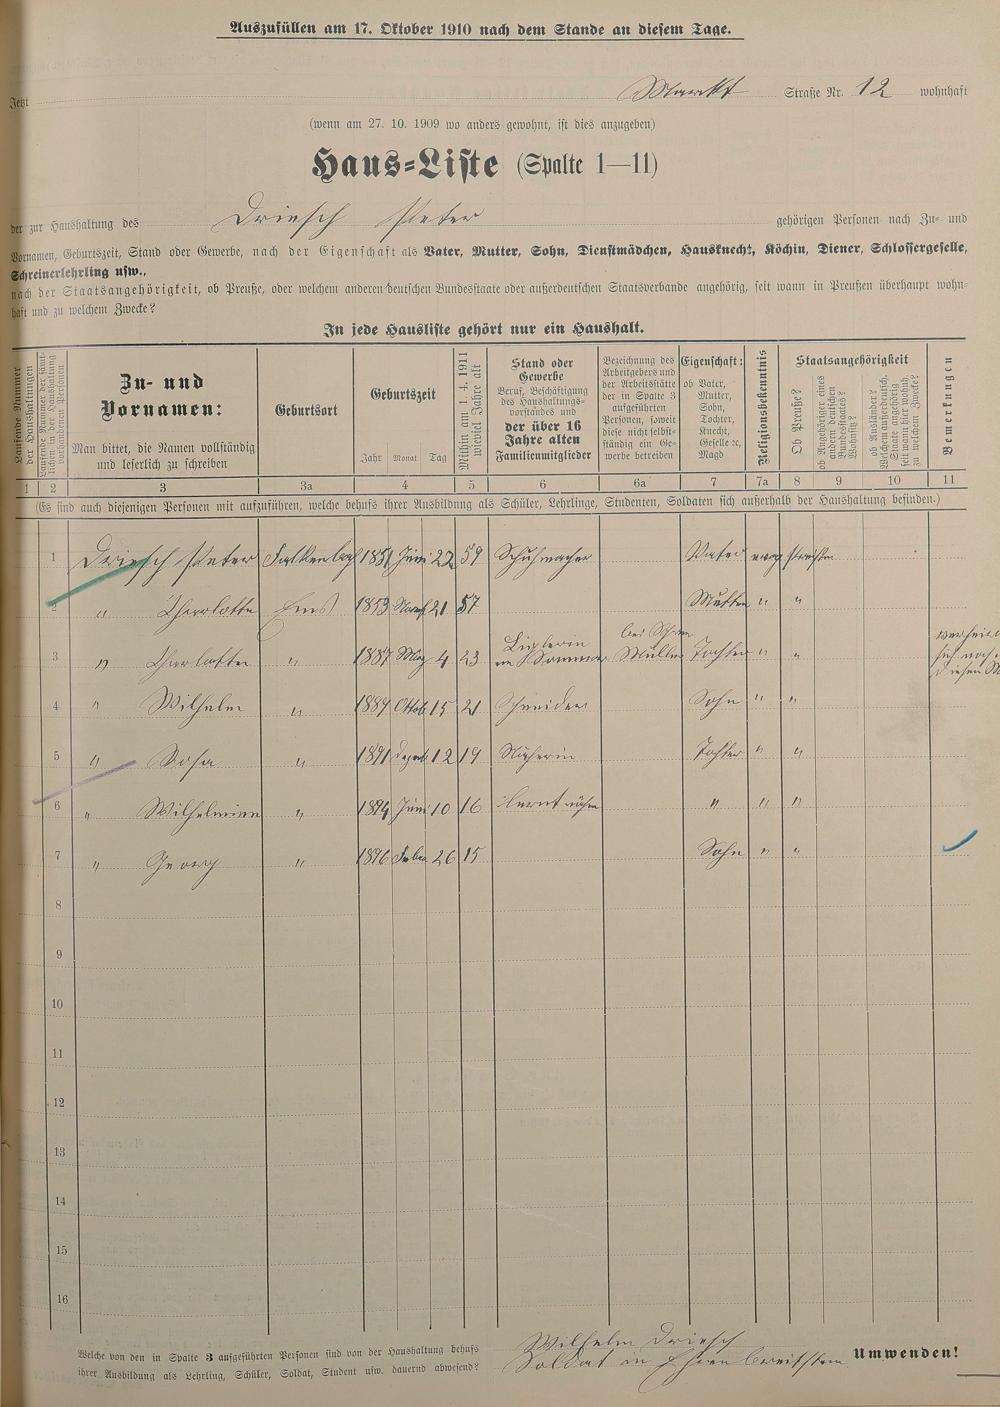 Auszufüllen am 17. Oktober 1910 nach dem Stande an diesem Tage.
Jetzt Markt Straße Nr. 12 wohnhaft
(wenn am 27. 10. 1909 wo anders gewohnt, ist dies anzugeben)
Haus=Liste (Spalte 1—11)
der zur Haushaltung des Driesch Peter gehörigen Personen nach Zu= und
Vornamen, Geburtszeit, Stand oder Gewerbe, nach der Eigenschaft als Vater, Mutter, Sohn, Dienstmädchen, Hausknecht, Köchin, Diener, Schlossergeselle,
Schreinerlehrling usw.,
nach der Staatsangehörigkeit, ob Preuße, oder welchem anderen deutschen Bundesstaate oder außerdeutschen Staatsverbande angehörig, seit wann in Preußen überhaupt wohn-
haft und zu welchem Zwecke?
In jede Hausliste gehört nur ein Haushalt.
Laufende Nummer der Haushaltungen
Laufende Nummer der sämtlichen in der Haushaltung vorhandenen Personen
Zu= und
Vornamen:
Man bittet, die Namen vollständig
und leserlich zu schreiben
Geburtsort
Geburtszeit
Jahr Monat Tag
Mithin am 1. 4. 1911
wieviel Jahre alt
Stand oder
Gewerbe
Beruf, Beschäftigung
des Haushaltungs-
vorstandes und
der über 16
Jahre alten
Familienmitglieder
Bezeichnung des
Arbeitgebers und
der Arbeitsstätte
der in Spalte 3
aufgeführten
Personen, soweit
diese nicht selbst-
ständig ein Ge-
werbe betreiben
Eigenschaft:
ob Vater,
Mutter,
Sohn,
Tochter,
Knecht,
Geselle ꝛc,
Magd
Religionsbekenntnis
Staatsangehörigkeit
Ob Preuße?
ob Angehöriger eines
andern deutschen
Bundesstaates?
Wohnitz?
ob Ausländer?
Welchem außerdeutsch.
Staate angehörig
seit wann hier wohnh.
zu welchem Zwecke?
Bemerkungen
1 2 3 3a 4 5 6 6a 7 7a 8 9 10 11
(Es sind auch diejenigen Personen mit aufzuführen, welche behufs ihrer Ausbildung als Schüler, Lehrlinge, Studenten, Soldaten sich außerhalb der Haushaltung befinden.)
1 Driesch Peter Falkenbach 1851 Juni 22 59 Schuhmacher Vater evag
2 " Charlotte Ems 1853 21 57 Mutter " "
3 " Charlotte " 1887 May 4 23 bei Müller Tochter " "
4 " Wilhelm " 1889 Oktob 15 21 Schneider Sohn " "
5 " Rosa " 1891 Dezmb 12 19 Näherin Tochter " "
6 " Wilhelmine " 1894 Juni 10 16 lernt nähen " " "
7 " Georg " 1896 26 15 Sohn " "
8
9
10
11
12
13
14
15
16
Welche von den in Spalte 3 aufgeführten Personen sind von der Haushaltung behufs
ihrer Ausbildung als Lehrling, Schüler, Soldat, Student usw. dauernd abwesend?
Wilhelm Driesch
Soldat in Ehrenbreitstein
Umwenden!